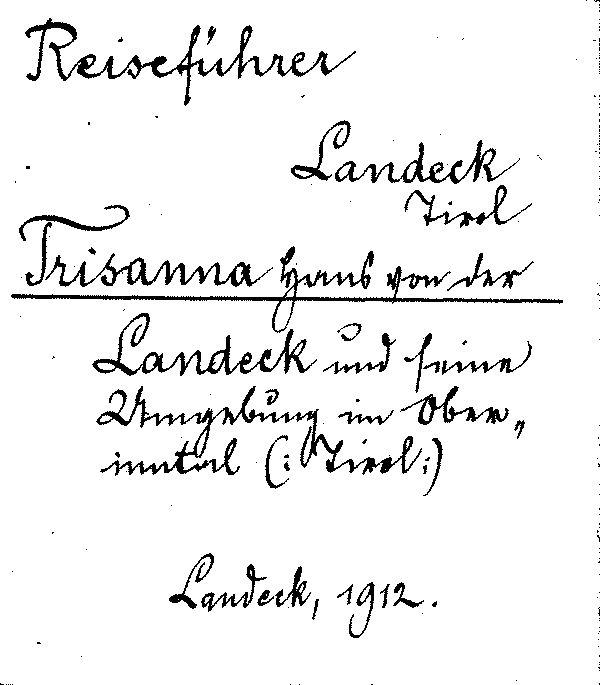 Reiseführer
Landeck
Tirol
Trisanna Hans von der
Landeck und seine
Umgebung im Ober„
inntal (: Tirol :)
Landeck, 1912.